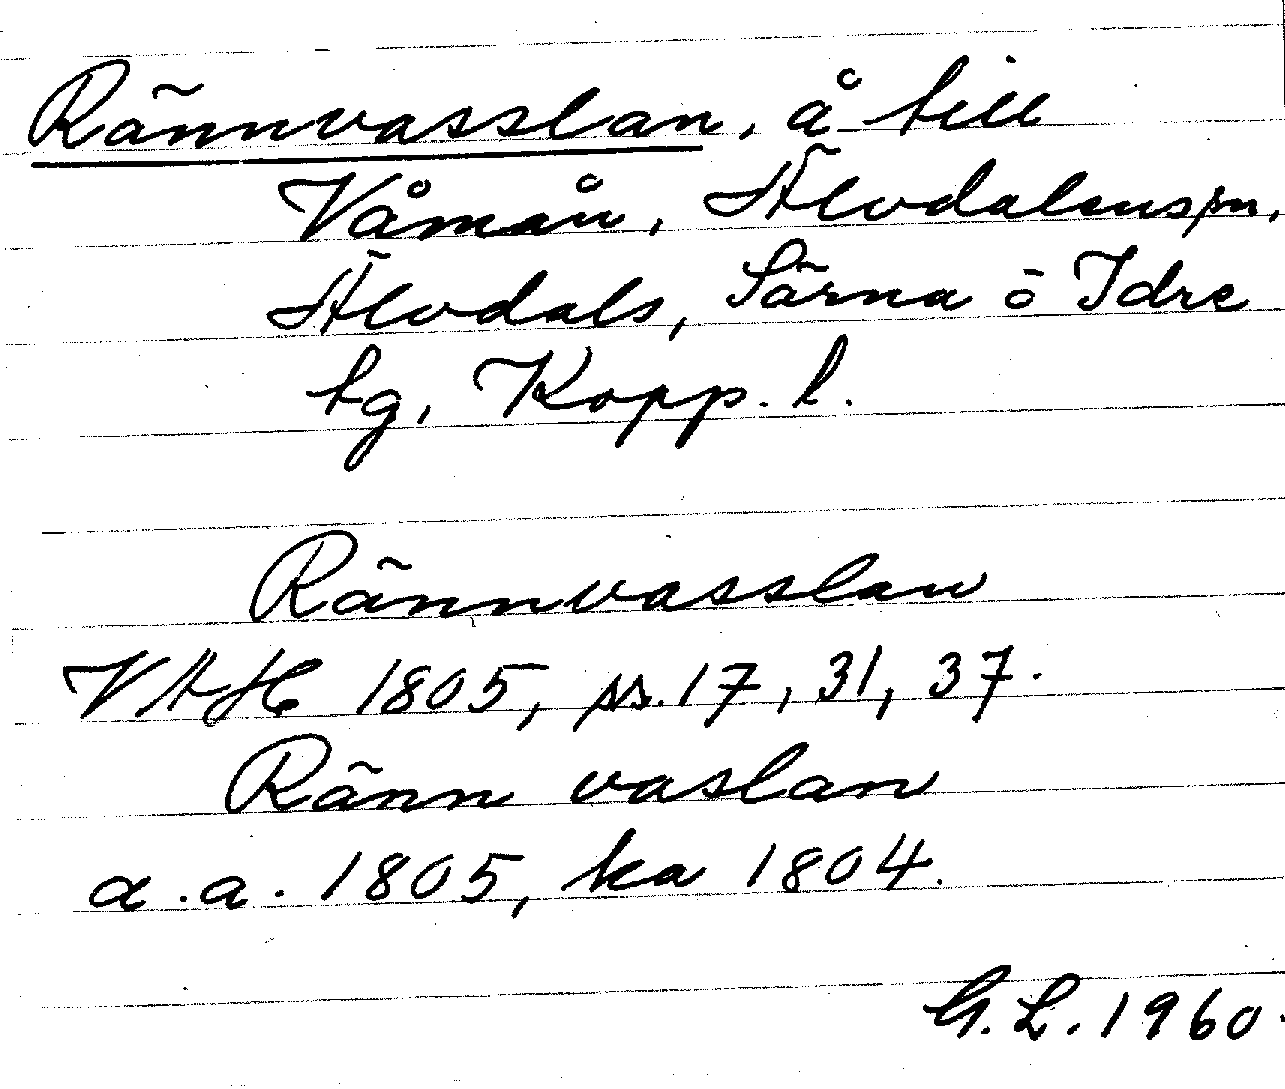 Rännvasslan, å till
Våmån, Älvdalens sn,
Älvdals, Särna o Idre
tg, Kopp. l.
Rännvasslan
VAH 1805, ss. 17, 31, 37.
Ränn vaslan
a.a. 1805, ka 1804.
G.L. 1960.